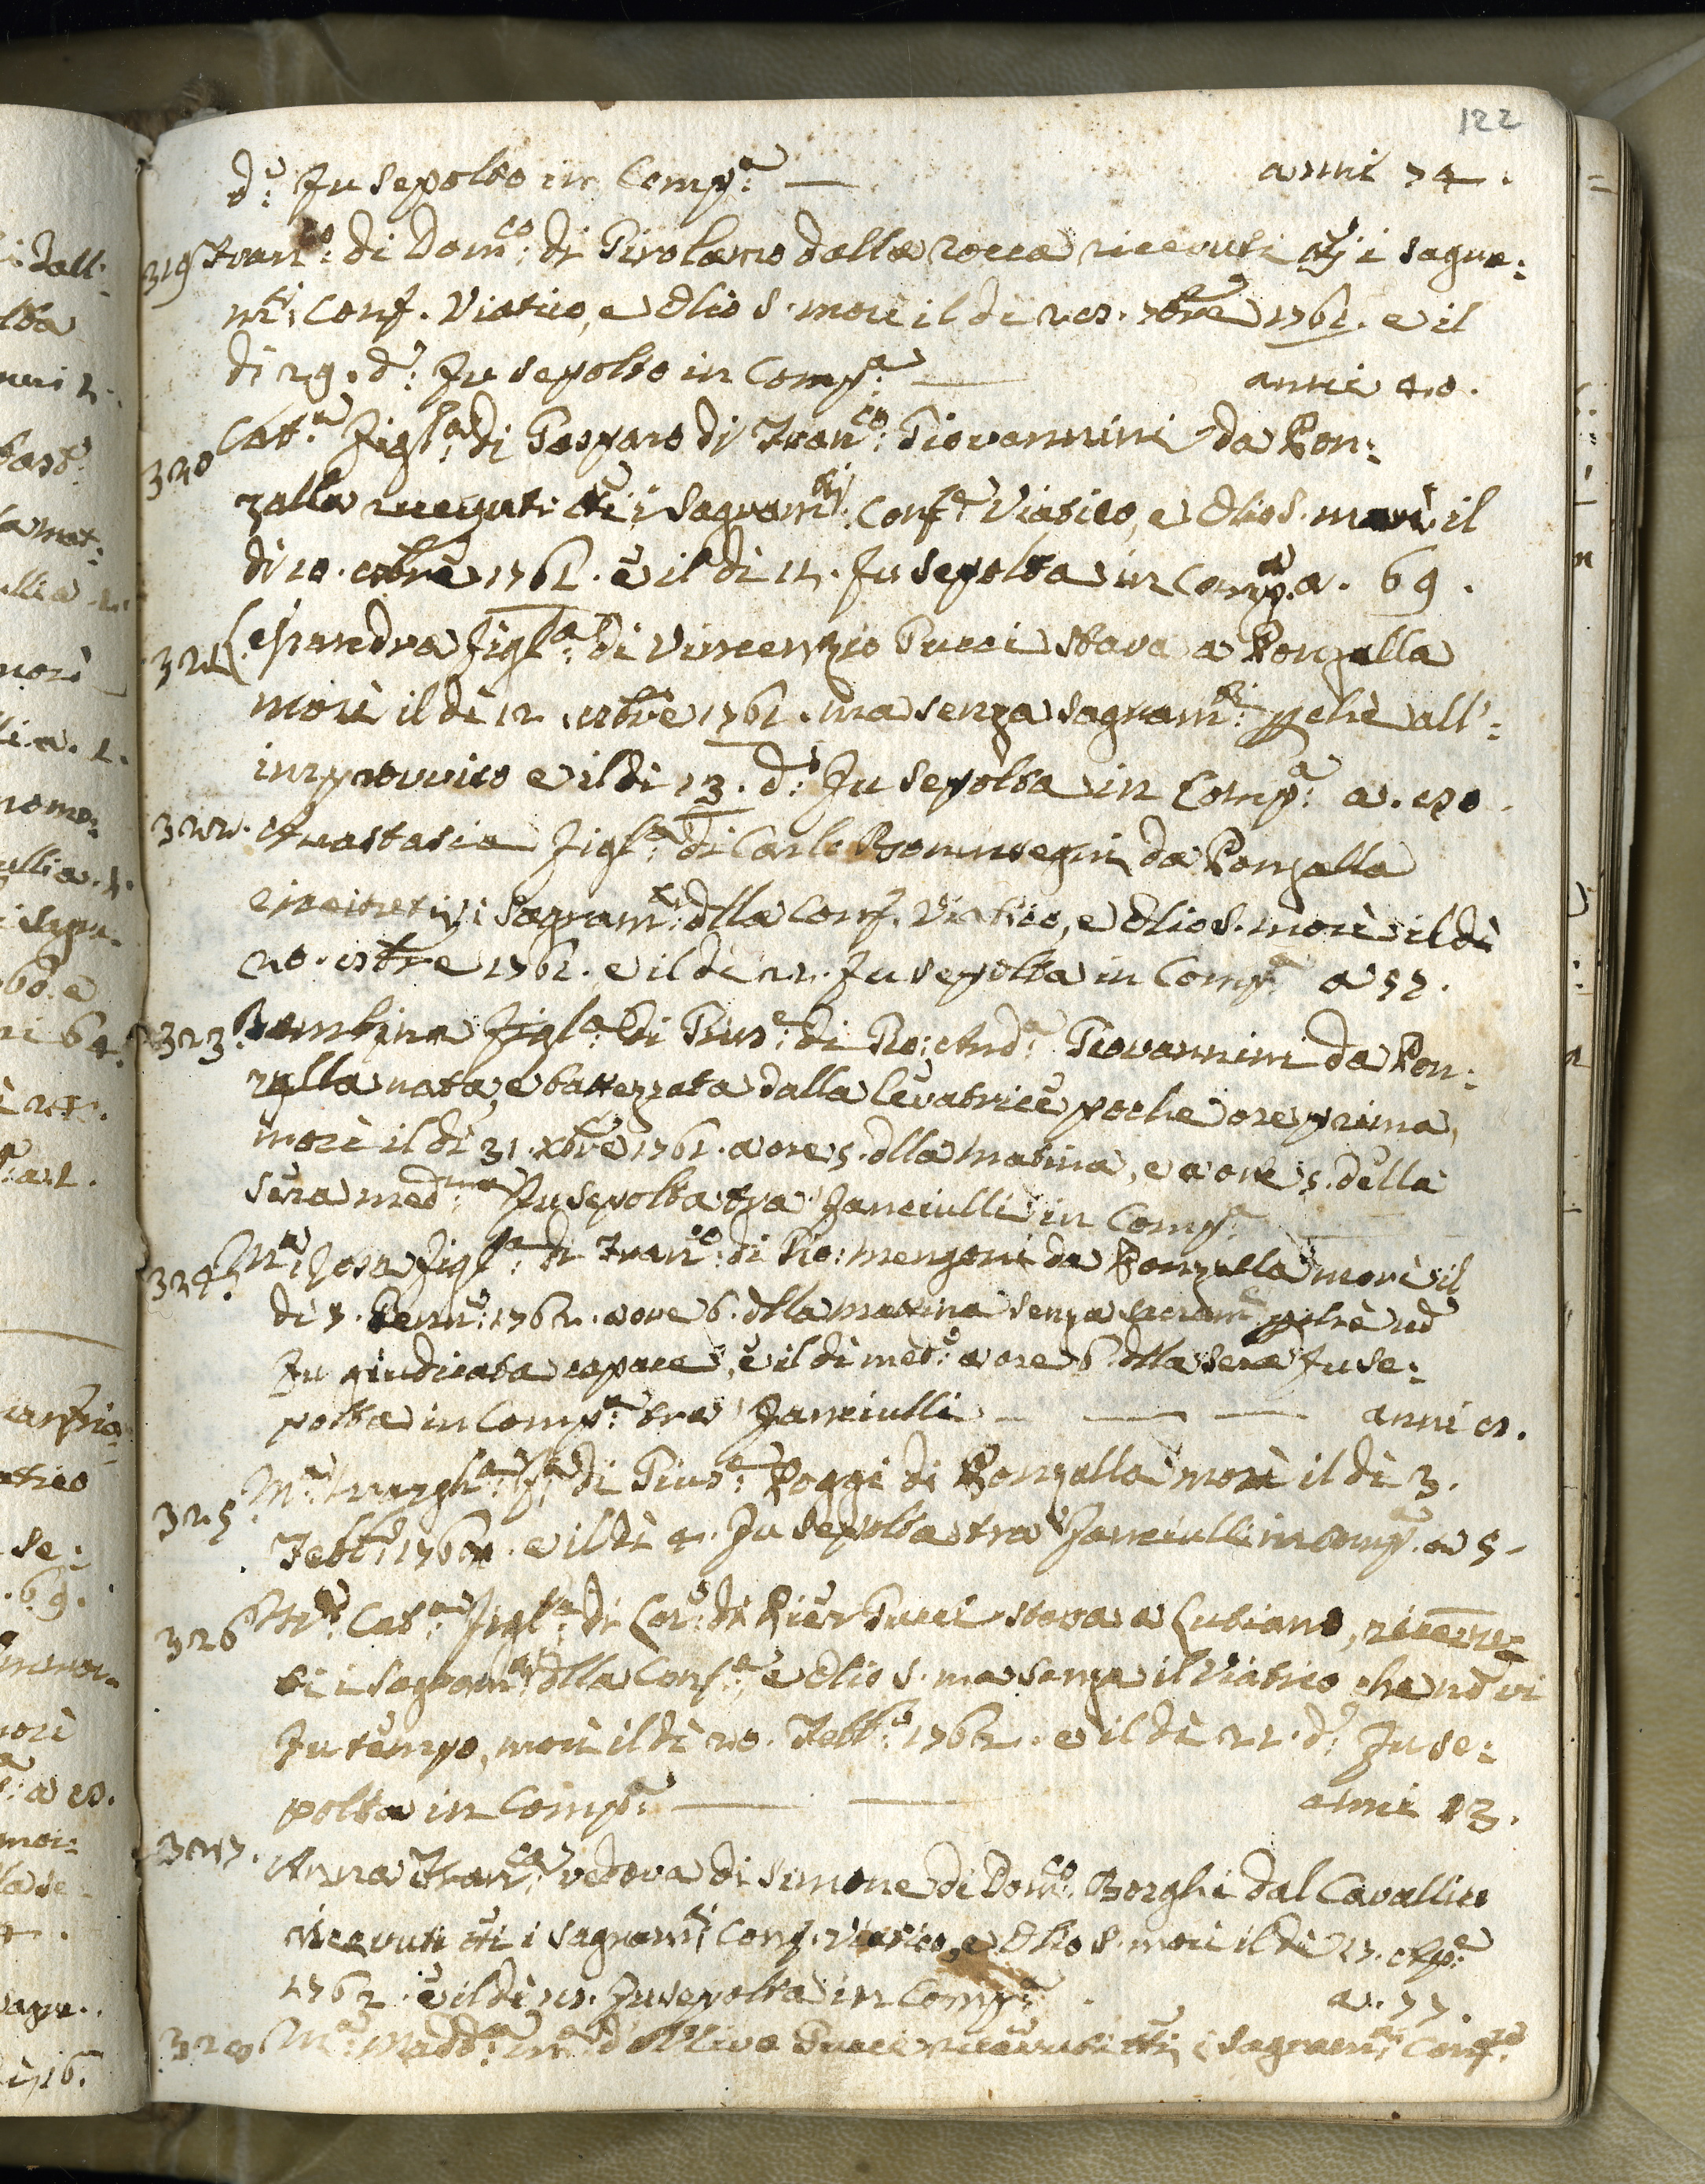 122
d:° fu sepolto in Comp:ª — anni 74.
319 Fran:co di Dom:co di Girolamo dalla Rocca ricevuti tti i sagra:
nti: Conf. Viatico, e Olio S. morì il dì 28. 7bre 1761. e il
dì 29. d:° fu sepolto in Comp:ª — anni 40.
320 Catt:ª figl:ª di Gasparo di Fran:co Giovannini da Pon:
zalla ricevuti tti i Sagram:ti Conf:e Viatico, e Olio S. morì il
dì 10. 8bre 1761. e il dì 11. fu sepolta in Comp:ª a. 69.
321 Lesandra figl:ª di Vincenzio Pucci stava a Ponzalla
morì il dì 12. 8bre 1761. ma senza sagram:ti pchè all':
improvviso e il dì 13. d:° fu sepolta in Comp:ª a. 80.
322. Anastasia figl:ª di Carlo da Ponzalla
i Sagram:ti dlla Conf. Viatico, e Olio S. morì il dì
20. 8bre 1761. e il dì 21. fu sepolta in Comp:ª a 57.
323. Bambina figl:ª di Gius:e di Gio: And:ª Giovannini da Pon:
zalla nata, e battezzata dalla levatrice poche ore prima,
morì il dì 31. Xbre 1761. a ore 5. dlla matina, e a ore 5. della
sera med:ma fu sepolta tra fanciulli in Comp:ª
324. M:ª Rosa figl:ª di Fran:co di Gio: Mengoni da Ponzalla morì il
dì 7. Genn:° 1762. a ore 6. dlla mattina senza sacram:ti pchè nō
fu giudicata capace, e il dì med:° a ore 6. dlla sera fu se:
polta in Comp:ª tra fanciulli — — — anni 8.
325. M:ª Margh:ª f:ª di Gius:e Poggi di Ponzalla morì il dì 3.
Febb:° 1762. e il dì 4. fu sepolta tra fanciulli in Comp:ª a 5.
326 M:ª Cat:ª figl:ª di Lor:° di Pier Pucci stava a Lutiano, riceuu:
ti i sagram:ti dlla Conf:e, e Olio S. ma senza il Viatico che nō vi
fu tempo, morì il dì 20. Febb:° 1762. e il dì 21. d:° fu se:
polta in Comp:ª — — anni 13.
327. Anna Fran:ca vedova di Simone di Dom:co Borghi dal Cavallico
ricevuti tti i sagram:ti Conf. Viatico, e Olio S. morì il dì 17. Ap:e
1762. e il dì 18. fu sepolta in Comp:ª a. 77.
328 M:ª Madd:ª Pucci ricevuti tti i sagram:ti Conf:e